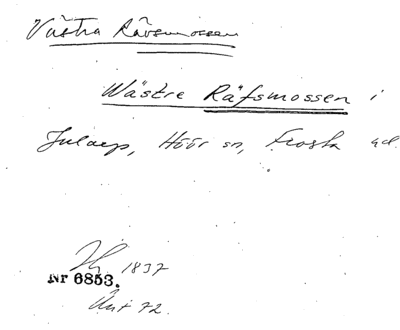 Västra Rävsmossen
Wästre Räfsmossen i
Jularp, Höör sn, Frosta hd.
1837
Nr 6853.
72.